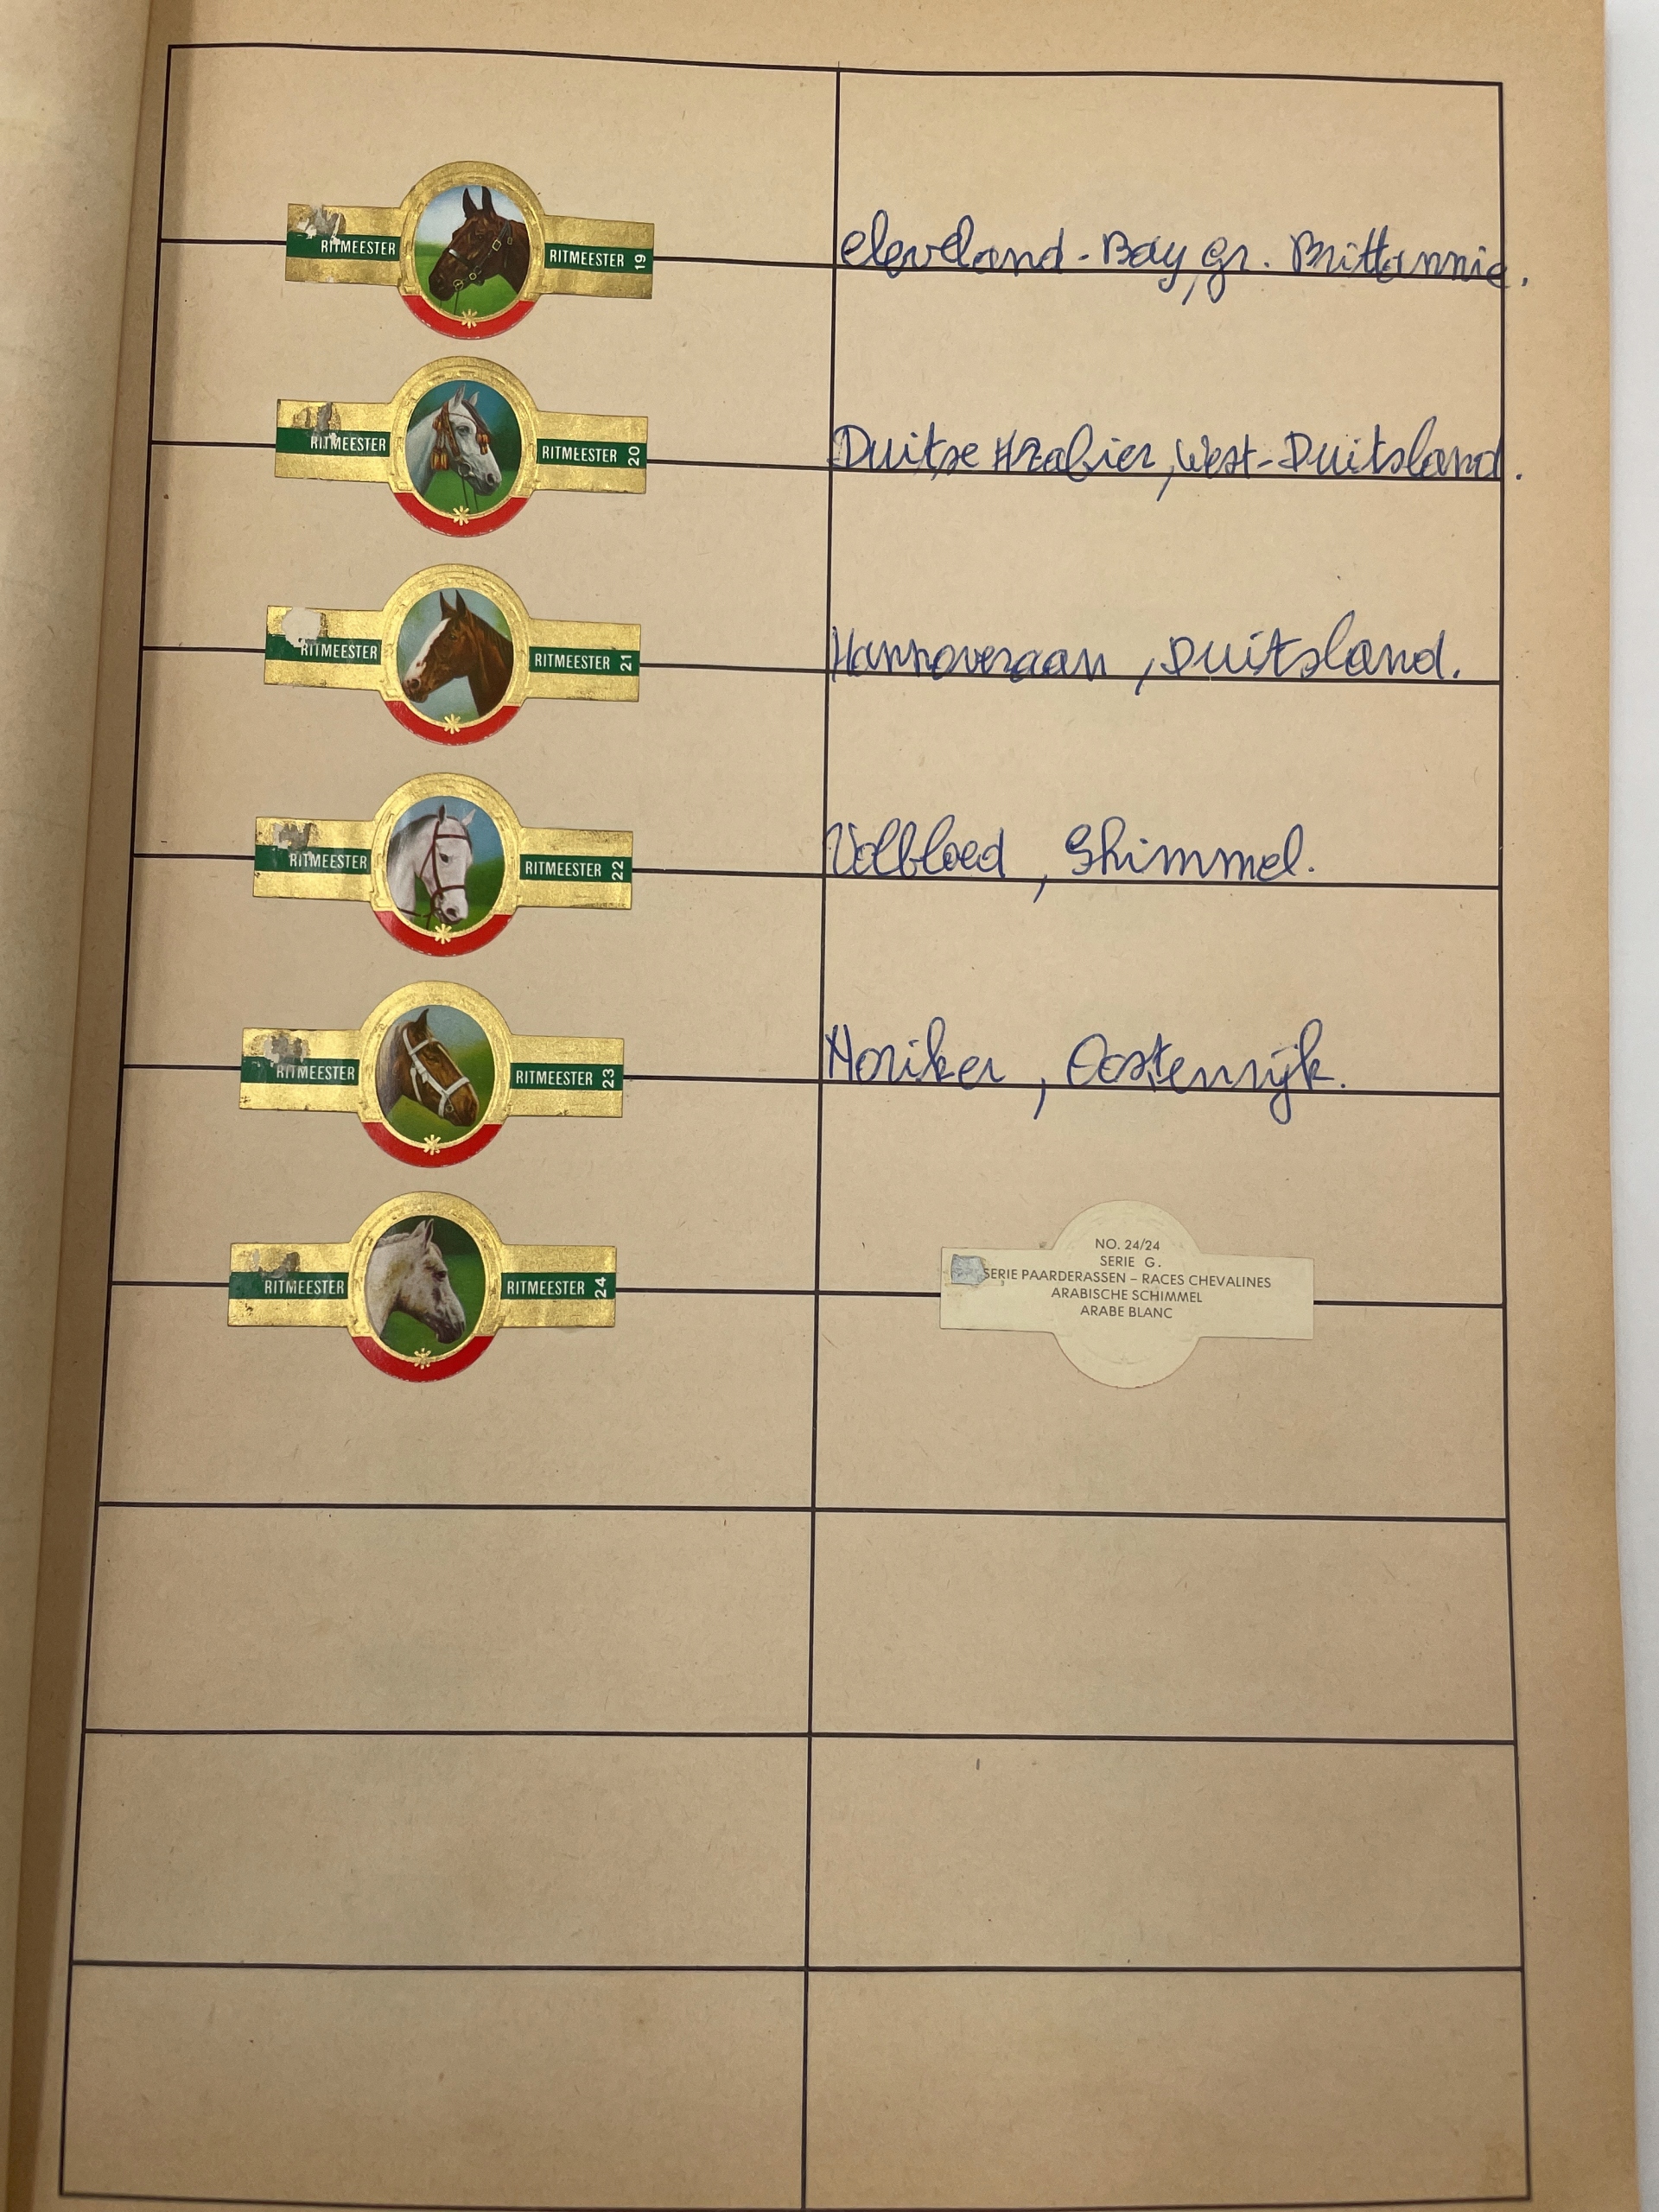 RITMEESTER RITMEESTER 19
Cleveland-Bay, Gr. Brittannie.
RITMEESTER RITMEESTER 20
Duitse Arabier, West-Duitsland.
RITMEESTER RITMEESTER 21
Hannoveraan, Duitsland.
RITMEESTER RITMEESTER 22
Volbloed, Shimmel.
RITMEESTER RITMEESTER 23
Noriker, Oostenrijk.
RITMEESTER RITMEESTER 24
NO. 24/24
SERIE G.
SERIE PAARDERASSEN – RACES CHEVALINES
ARABISCHE SCHIMMEL
ARABE BLANC